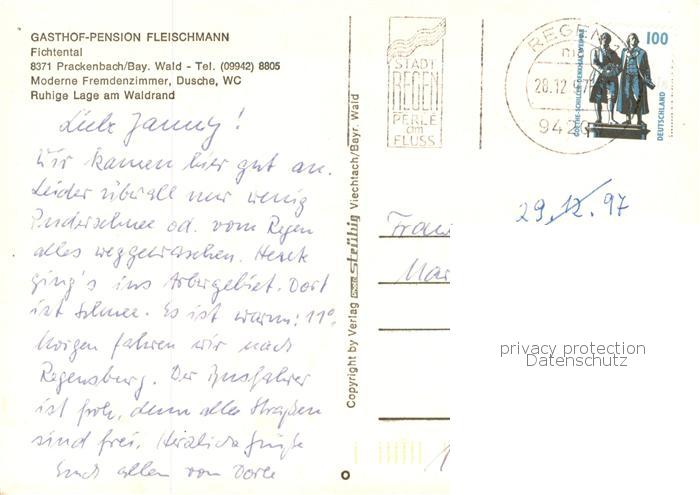 GASTHOF-PENSION FLEISCHMANN
Fichtental
8371 Prackenbach/Bay. Wald - Tel. (09942) 8805
Moderne Fremdenzimmer, Dusche, WC
Ruhige Lage am Waldrand
Liebe Janny!
Wir kamen hier gut an.
Leider überall nur wenig
Puderschnee od. vom Regen
alles weggewaschen. Heute
ging's ins Arbergebiet. Dort
ist Schnee. Es ist warm: 11°.
Morgen fahren wir nach
Regensburg. Der Busfahrer
ist froh, denn alle Straßen
sind frei. Herzliche Grüße
Euch allen von Dorle
Copyright by Verlag Photo Strübig Viechtach/Bayr. Wald
STADT
REGEN
PERLE
am
FLUSS
REGEN
28.12.97
942
GOETHE-SCHILLER-DENKMAL WEIMAR
100
DEUTSCHLAND
29.12.97
Frau
Mar
privacy protection
Datenschutz